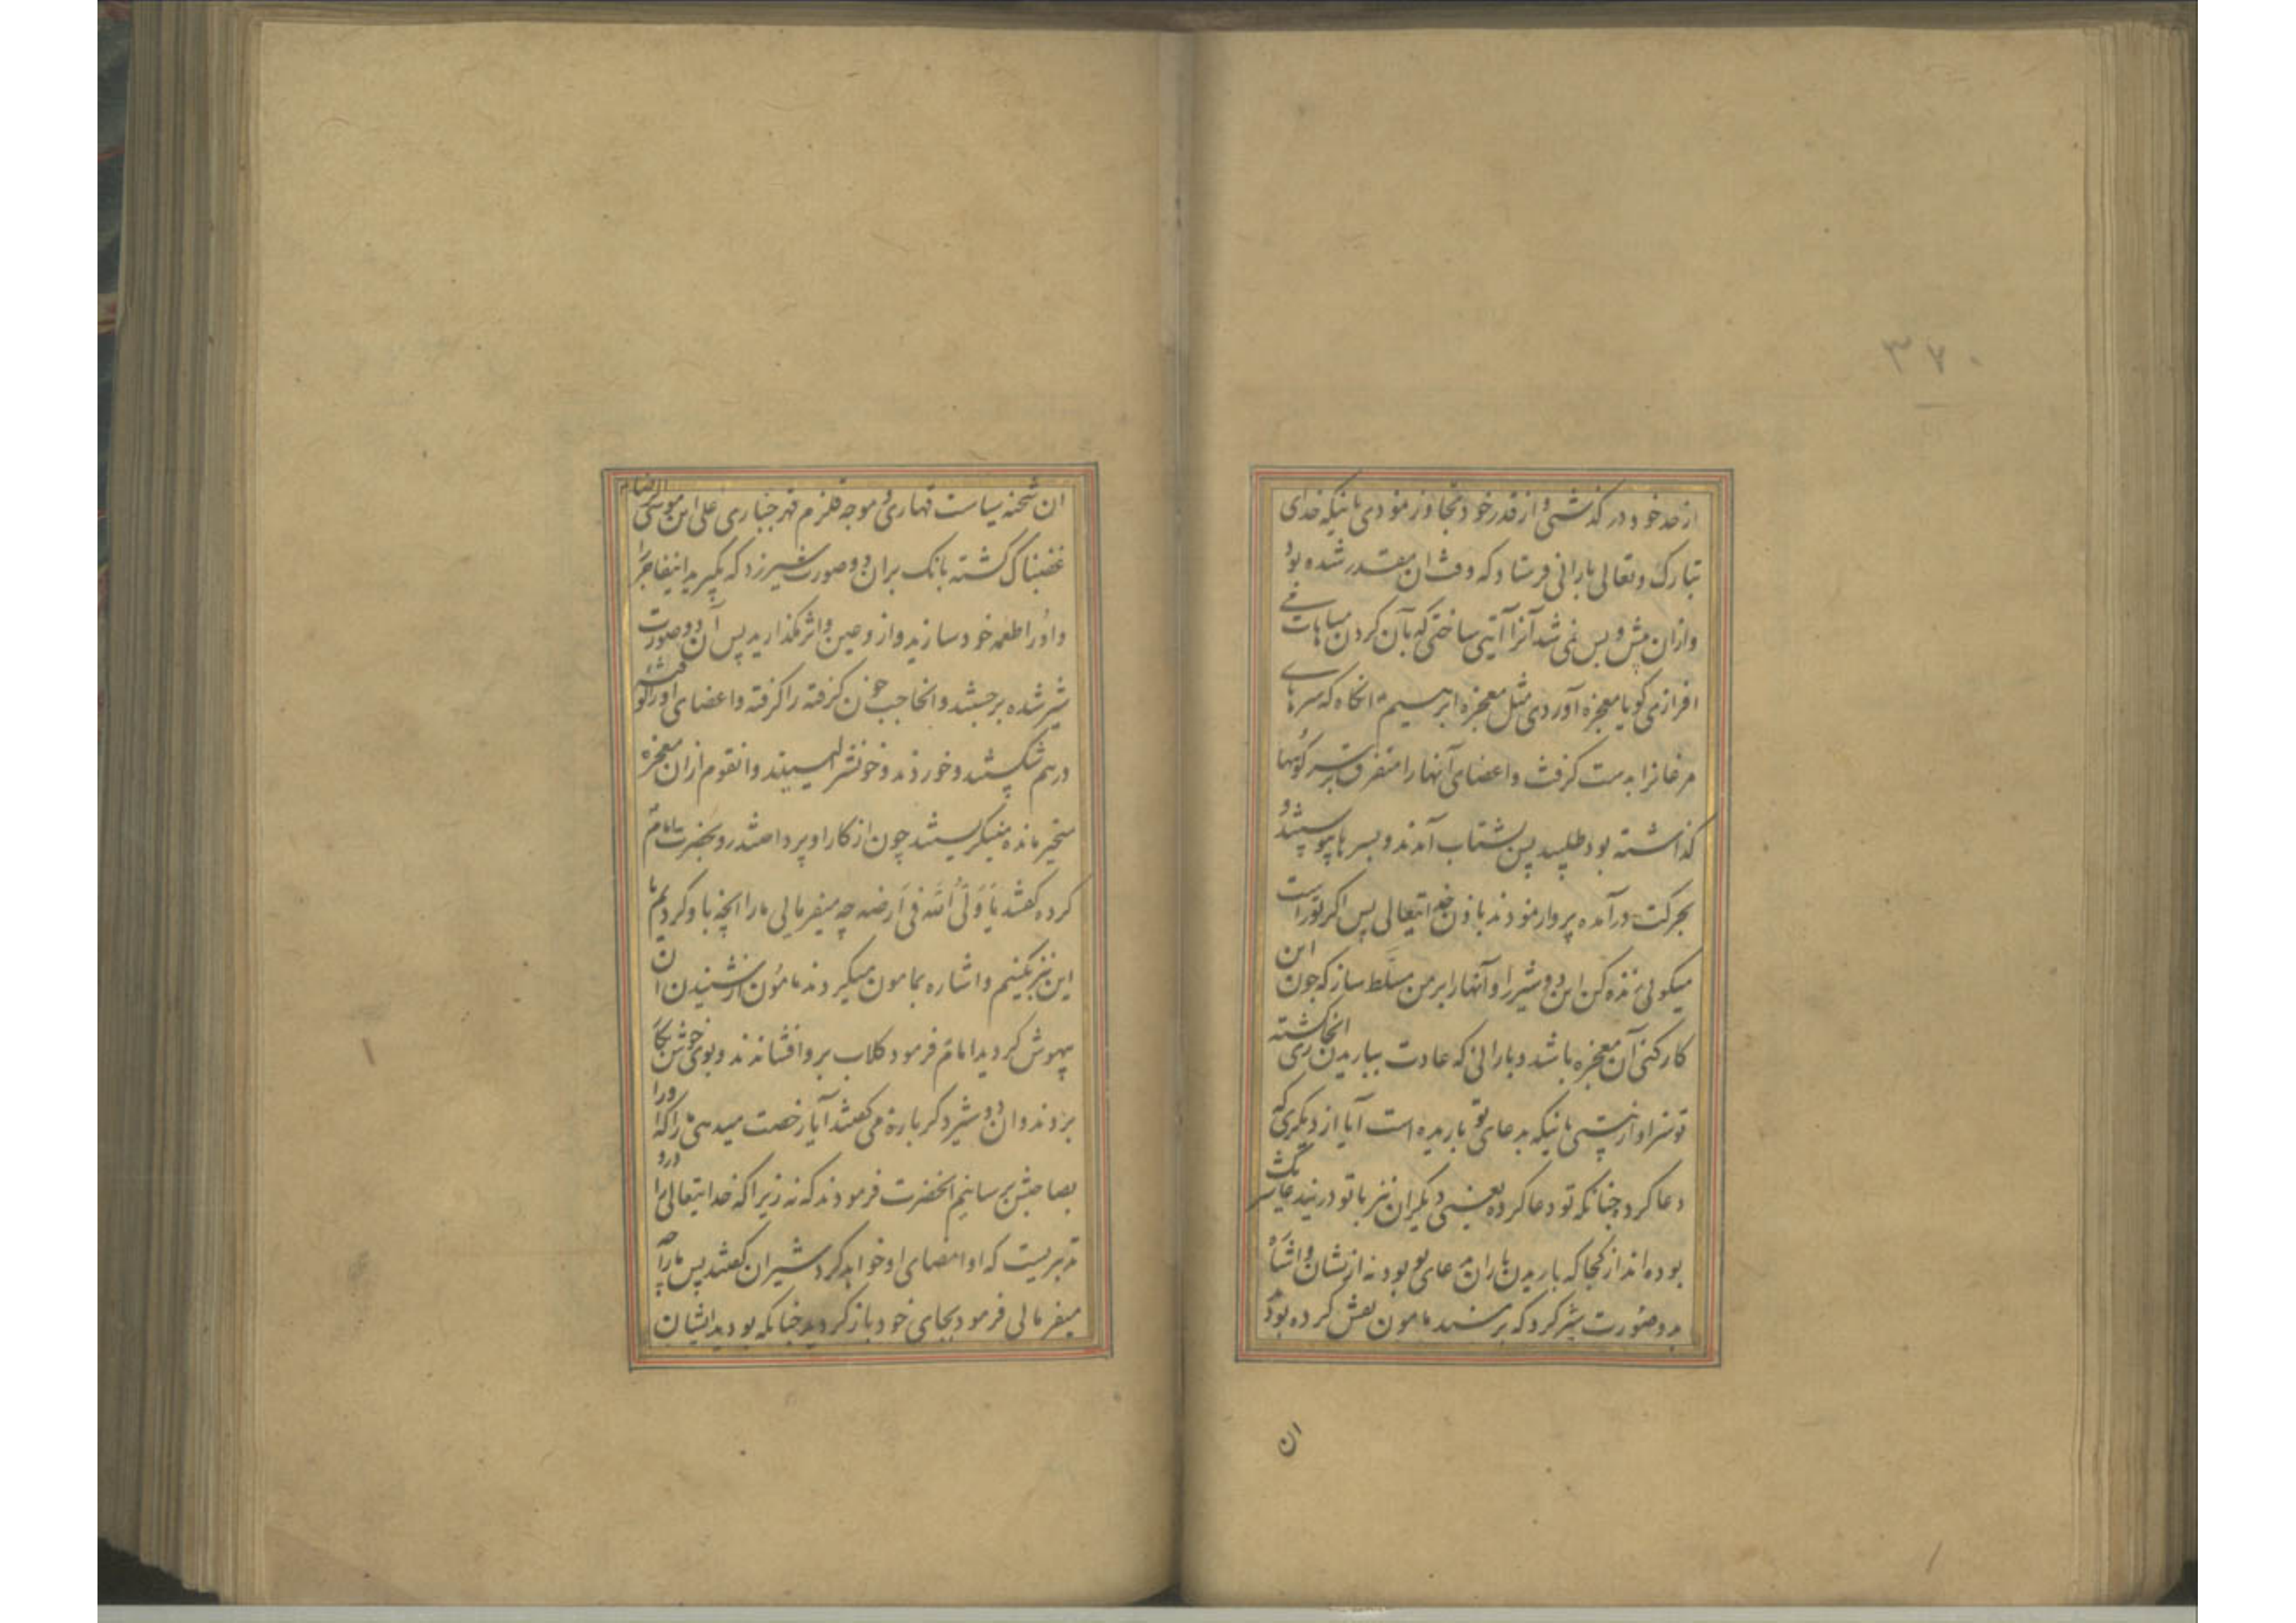 ۳۷۰
از حد خود در گذشتی و از قدر خود تجاوز نمودی بانیکه خدای
تبارک و تعالی بارانی فرستاد که وقت ان مقدر شده بود
و ازان پیش و پس نمی شد آنرا آیتی ساختی که بآن کردن مباهات می
افرازی گویا معجزه آوردی مثل معجزه ابرهیم انگاه که سرهای
مرغانرا بدست گرفت و اعضای آنها را متفرق بر سر کوهها
گذاشته بود طلبید پس بشتاب آمدند و بسرها پیوستند و
بحرکت درآمده پرواز نمودند باذن خدایتعالی پس اگر تو راست
میگوئی زنده کن این دو شیر را و آنها را بر من مسلط ساز که چون این
کار کنی آن معجزه باشد و بارانی که عادت بباریدن ری انجا گشته
تو سزاوارنیستی بانیکه بدعای تو باریده است آیا از دیگری که
دعا کرد چنانکه تو دعا کرده یعنی دیگران نیز با تو درنید عا
بوده اند از کجا که باریدن باران بدعای تو بود نه ازیشان و اشاه
بدو صورت شیر کرد که بر مسند مامون نقش کرده بود
ان
ان شحنه سیاست قهاری و موجه قلزم قهر جباری علی ابن موسی الرضا
غضبناک گشته بانک بران دو صورت شیر زد که بگیرید اینفاجرا
و اورا طعمه خود سازید و از و عین و اثر مگذارید پس آن دو صورت
شیر شده برجستند و انحاجب خون گرفته را گرفته و اعضای اورا
درهم شکستند و خوردند و خونش لیسیدند و انقوم ازان معجزه
متحیر مانده مینگریستند چون از کار او پرداختند رو بحضرت امام
کرده گفتند یا ولی الله فی ارضه چه میفرمایی مارا انچه با و کردیم با
این نیز بکنیم و اشاره بمامون میکردند مامون از شنیدن ان
بیهوش گردید امام فرمود گلاب برو افشاندند و بوی خوش بکار
بردند و ان دو شیر دگرباره می گفتند آیا رخصت میدهی مارا که او را
بصاحبش برسانیم انحضرت فرمودند که نه زیرا که خدایتعالی را درو
تدبیریست که او امضای او خواهد کرد شیران گفتند پس مارا چه
میفرمائی فرمود بجای خود باز گردید چنانکه بودید ایشان